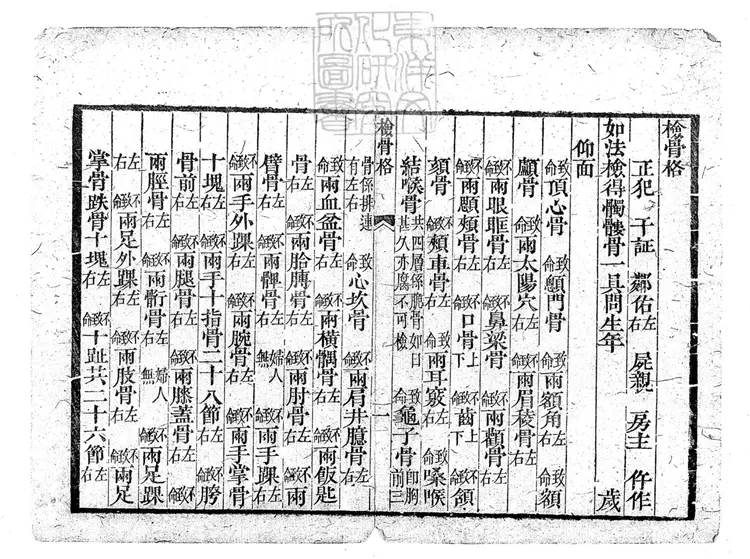 東洋文
化研究
所圖書
檢骨格
正犯 干証 鄰佑左右 屍親 房主 仵作
如法檢得髑髏骨一具問生年 歲
仰面
致命頂心骨 致命顖門骨 致命兩額角左右 致命額
顱骨 致命兩太陽穴左右 不致命兩眉稜骨左右
不致命兩眼眶骨左右 不致命鼻梁骨 不致命兩顴骨左右
不致命兩顋頰骨左右 不致命口骨上下 不致命齒上下 不致命頷
頦骨 不致命頰車骨左右 致命兩耳竅左右 致命嗓喉
結喉骨共四層係脆骨如日甚久亦腐不可檢 致命龜子骨即胸前三
檢骨格 一
骨係排連有左右 致命心坎骨 不致命兩肩井臆骨左右
致命兩血盆骨左右 不致命兩橫髃骨左右 不致命兩飯匙
骨左右 不致命兩胳膊骨左右 不致命兩肘骨左右 不致命兩
臂骨左右 不致命兩髀骨左右 婦人無 不致命兩手踝左右
不致命兩手外踝左右 不致命兩腕骨左右 不致命兩手掌骨
十塊左右 不致命兩手十指骨二十八節左右 不致命胯
骨前左右 不致命兩腿骨左右 不致命兩膝蓋骨左右 不致命
兩脛骨左右 不致命兩䯒骨左右 婦人無 不致命兩足踝
左右 不致命兩足外踝左右 不致命兩肢骨左右 不致命兩足
掌骨跌骨十塊左右 不致命十趾共二十六節左右